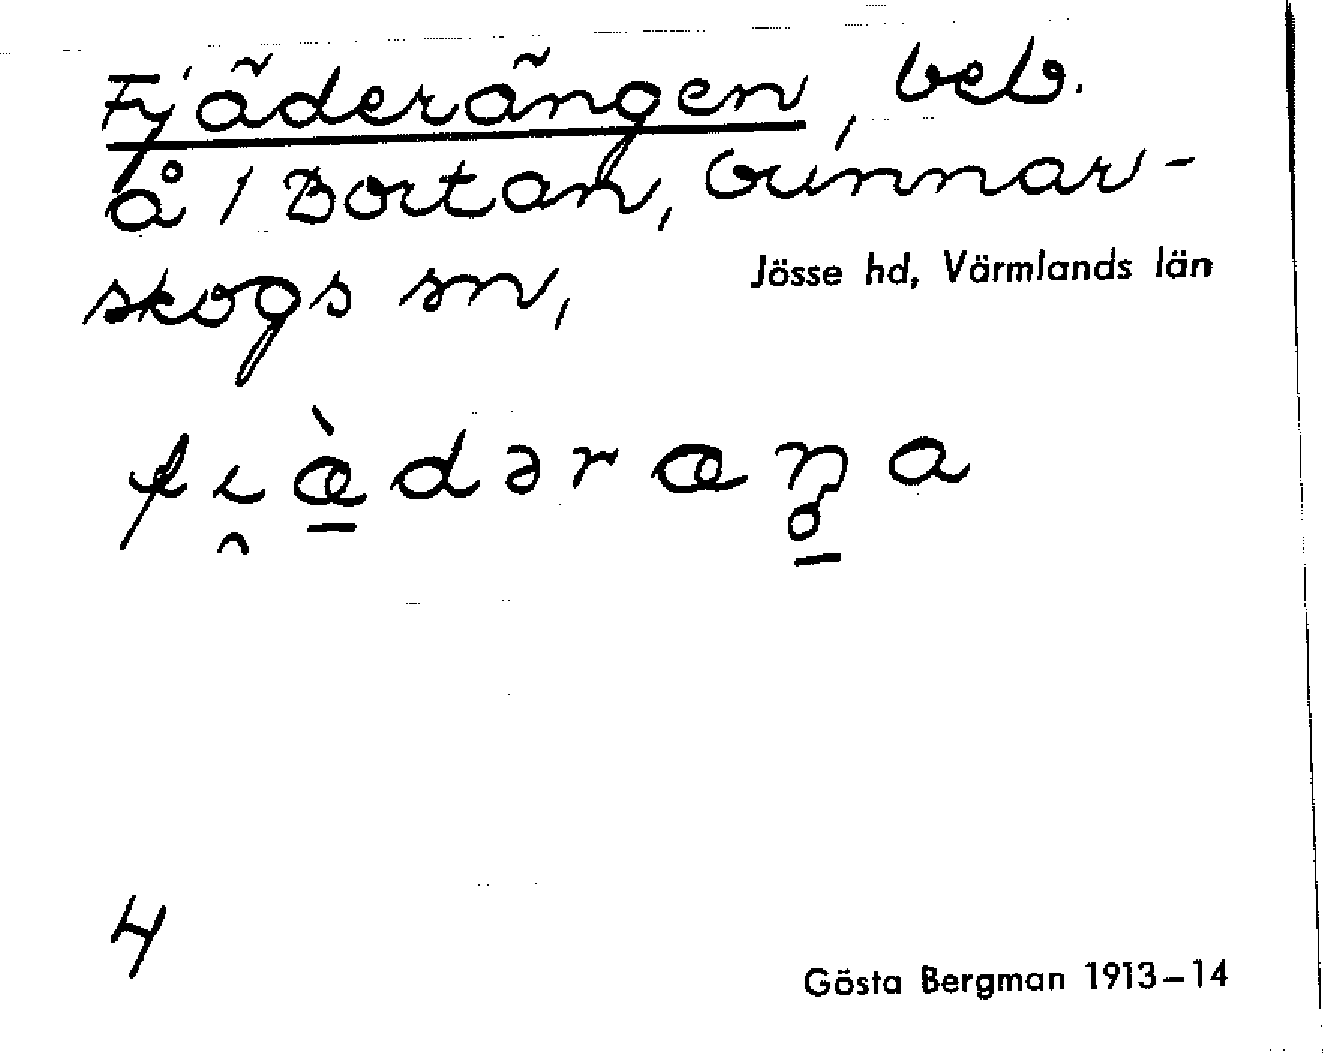 Fjäderängen, beb.
å 1 Bortan, Gunnar-
skogs sn,
Jösse hd, Värmlands län
fi̯æ̀dəræŋa
4
Gösta Bergman 1913–14